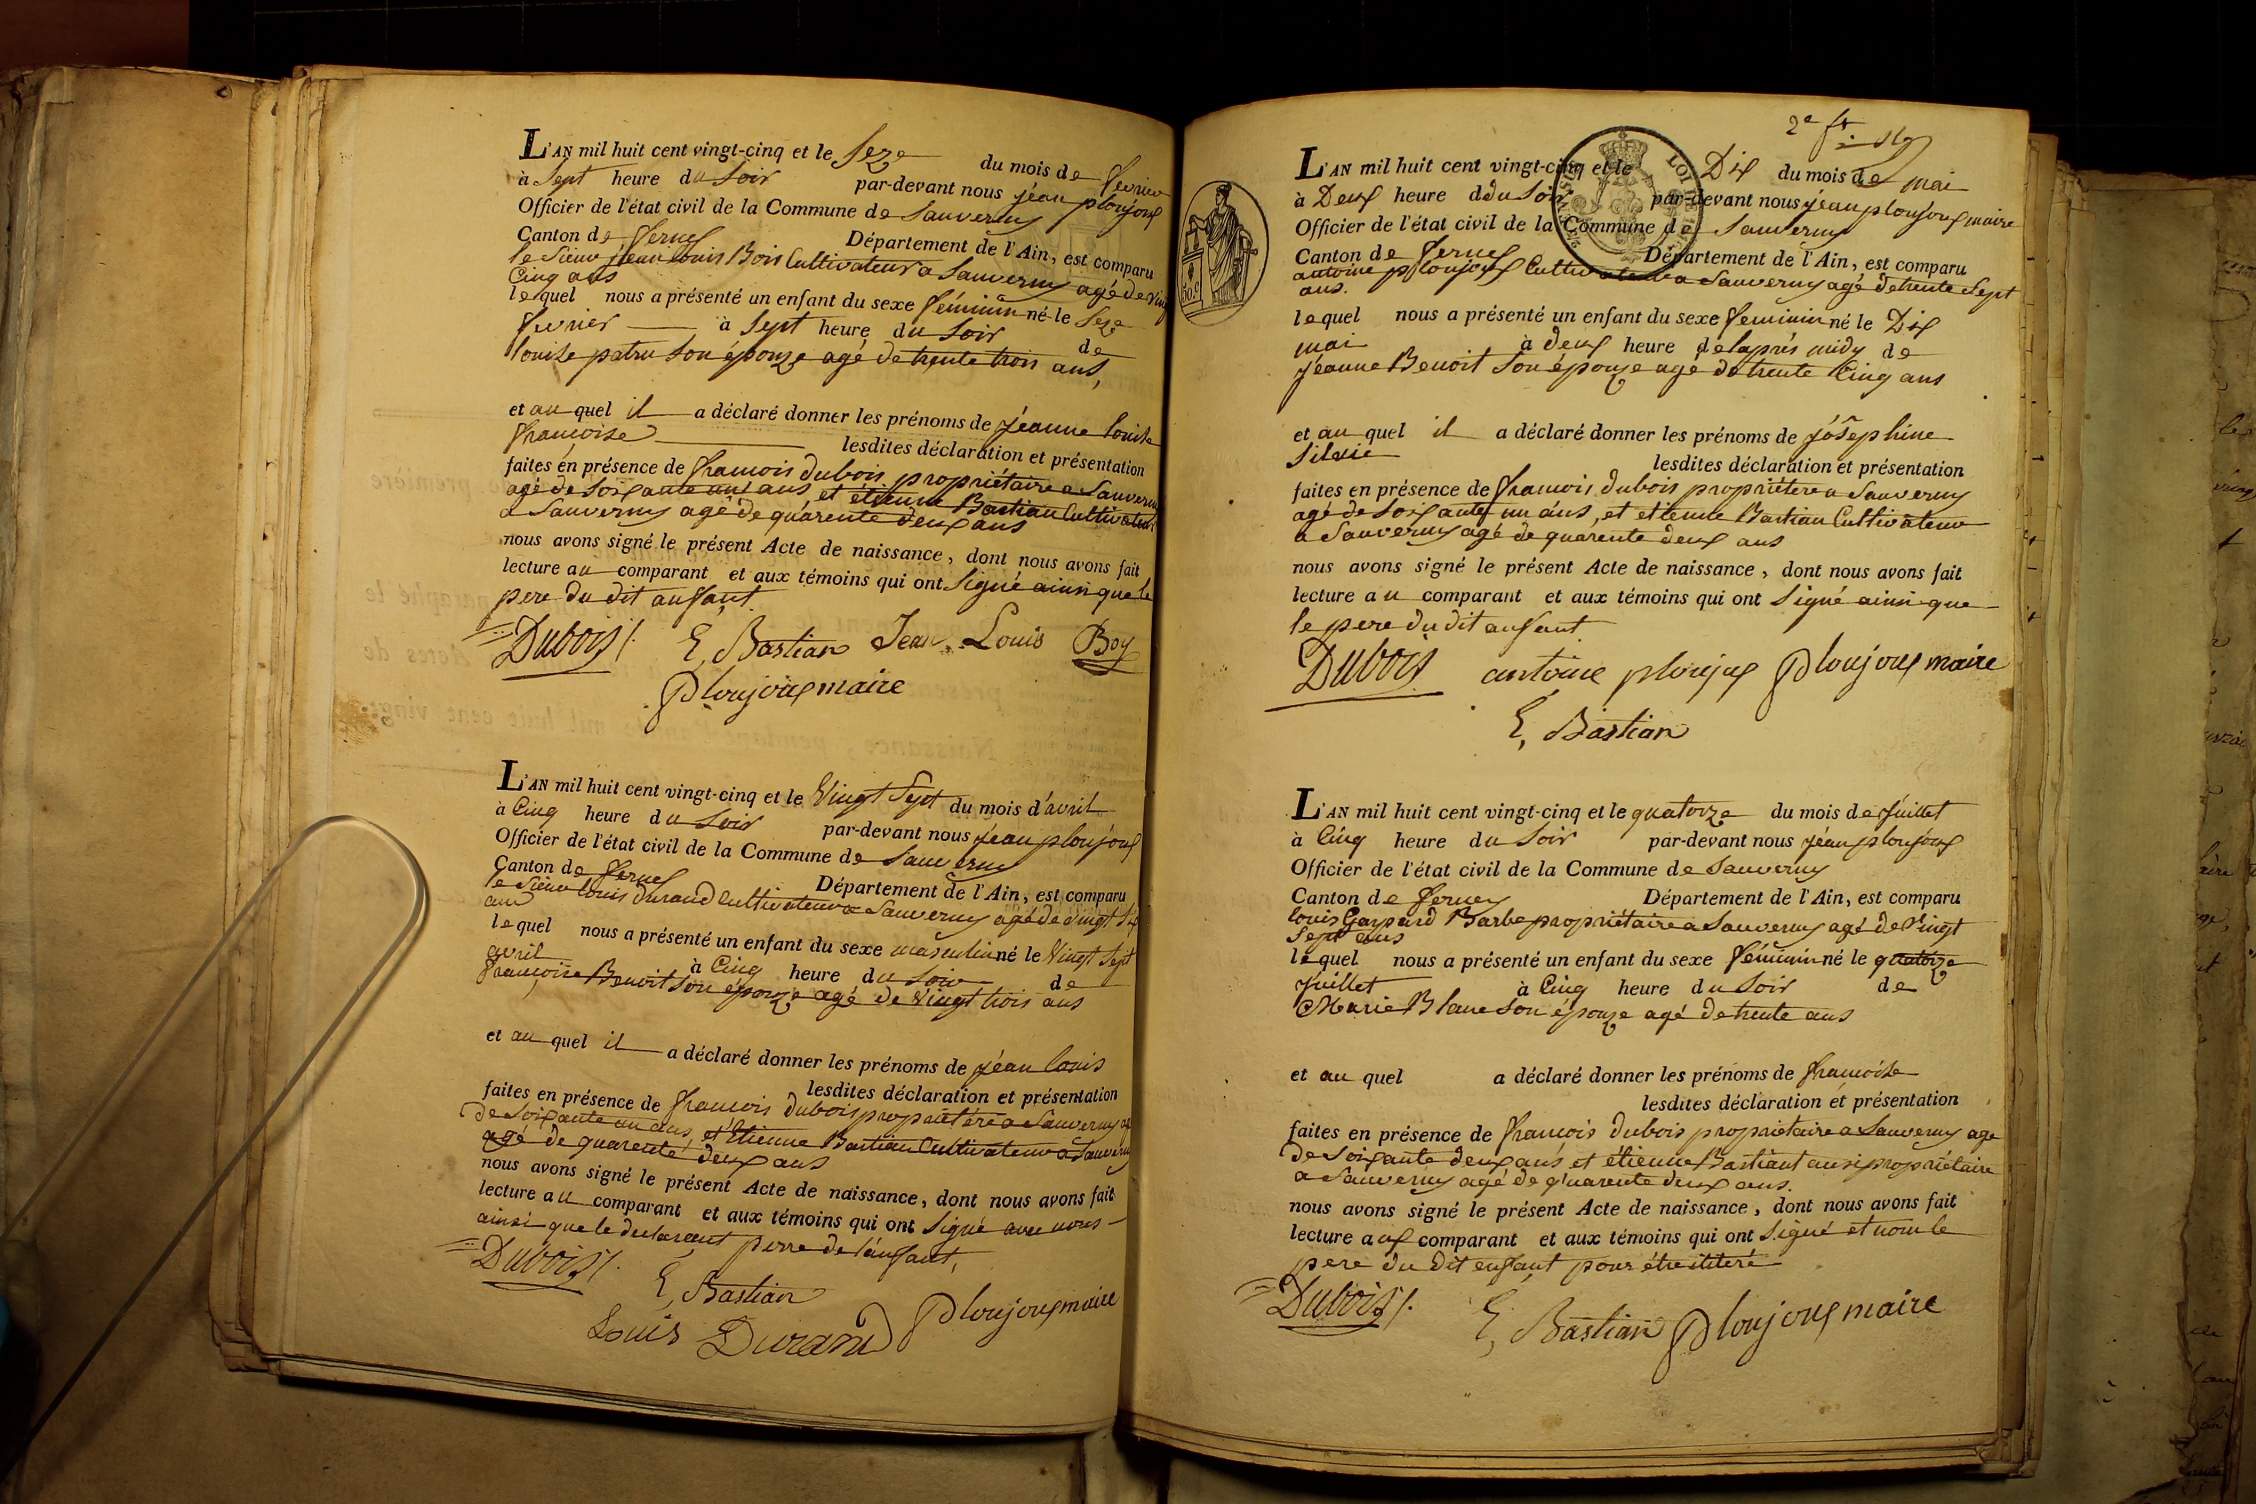 L'AN mil huit cent vingt-cinq et le Seze du mois de fevrier
à Sept heure du Soir par-devant nous jéan ploujoux
Officier de l'état civil de la Commune de Sauverny
Canton de ferney Département de l'Ain, est comparu
le Sieur jéan Louis Bois Cultivateur a Sauverny agé de Vingt
Cinq ans
lequel nous a présenté un enfant du sexe féminin né le Seze
fevrier à Sept heure du Soir de
louise patru Son épouze agé de trente trois ans,
et au quel il a déclaré donner les prénoms de jéanne louise
françoise lesdites déclaration et présentation
faites en présence de francois dubois propriétaire a Sauverny
agé de Soixante un ans, et étienne Bastian Cultivateur
a Sauverny agé de quarente deux ans
nous avons signé le présent Acte de naissance, dont nous avons fait
lecture au comparant et aux témoins qui ont Signé ainsi que le
pere du dit anfant.
Dubois E, Bastian Jean Louis Boy
Ploujoux maire
L'AN mil huit cent vingt-cinq et le Vingt Sept du mois d'avril
à Cinq heure du Soir par-devant nous jéan ploujoux
Officier de l'état civil de la Commune de Sauverny
Canton de ferney Département de l'Ain, est comparu
le Sieur louis durand Cultivateur a Sauverny agé de Vingt Six
ans
lequel nous a présenté un enfant du sexe masculin né le Vingt Sept
avril à Cinq heure du Soir de
françoise Benoit Son épouze agé de Vingt trois ans
et au quel il a déclaré donner les prénoms de jéan louis
lesdites déclaration et présentation
faites en présence de francois dubois propriétére a Sauverny agé
de Soixante un ans, et Etienne Bastian Cultivateur a Sauverny
agé de quarente deux ans
nous avons signé le présent Acte de naissance, dont nous avons fait
lecture au comparant et aux témoins qui ont Signé avec nous
ainsi que le declarent perre de l'anfant,
Dubois
E, Bastian
Louis Durand Ploujoux maire
2e
L'AN mil huit cent vingt-cinq et le Dix du mois de mai
à Deux heure ddu Soir par-devant nous jéan ploujoux maire
Officier de l'état civil de la Commune de Sauverny
Canton de ferney Département de l'Ain, est comparu
antoine ploujoux Cultivateur a Sauverny agé de trente Sept
ans.
lequel nous a présenté un enfant du sexe feminin né le Dix
mai à deux heure de laprés midy de
jéanne Benoit Son épouze agé de trente Cinq ans
et au quel il a déclaré donner les prénoms de jósephine
Silvie
lesdites déclaration et présentation
faites en présence de francois dubois propriétere a Sauverny
agé de Soixante un ans, et etienne Bastian Cultivateur
a Sauverny agé de quarente deux ans
nous avons signé le présent Acte de naissance, dont nous avons fait
lecture au comparant et aux témoins qui ont Signé ainsi que
le pere du dit anfant.
Dubois antoine ploujoux Ploujoux maire
E, Bastian
L'AN mil huit cent vingt-cinq et le quatorze du mois de juillet
à Cinq heure du Soir par-devant nous jéan ploujoux
Officier de l'état civil de la Commune de Sauverny
Canton de ferney Département de l'Ain, est comparu
louis Gaspard Barbe propriétaire a Sauverny agé de Vingt
Sept ans
lequel nous a présenté un enfant du sexe féminin né le quatorze
juillet à Cinq heure du Soir de
Marie Blanc Son épouze agé de trente ans
et au quel a déclaré donner les prénoms de françoise
lesdites déclaration et présentation
faites en présence de francois dubois propriétaire a Sauverny agé
de Soixante deux ans et étienne Bastiant ausi propriétaire
a Sauverny agé de quarente deux ans.
nous avons signé le présent Acte de naissance, dont nous avons fait
lecture aux comparant et aux témoins qui ont Signé et nom le
pere du dit enfant pour étre ititeré
Dubois E, Bastian Ploujoux maire